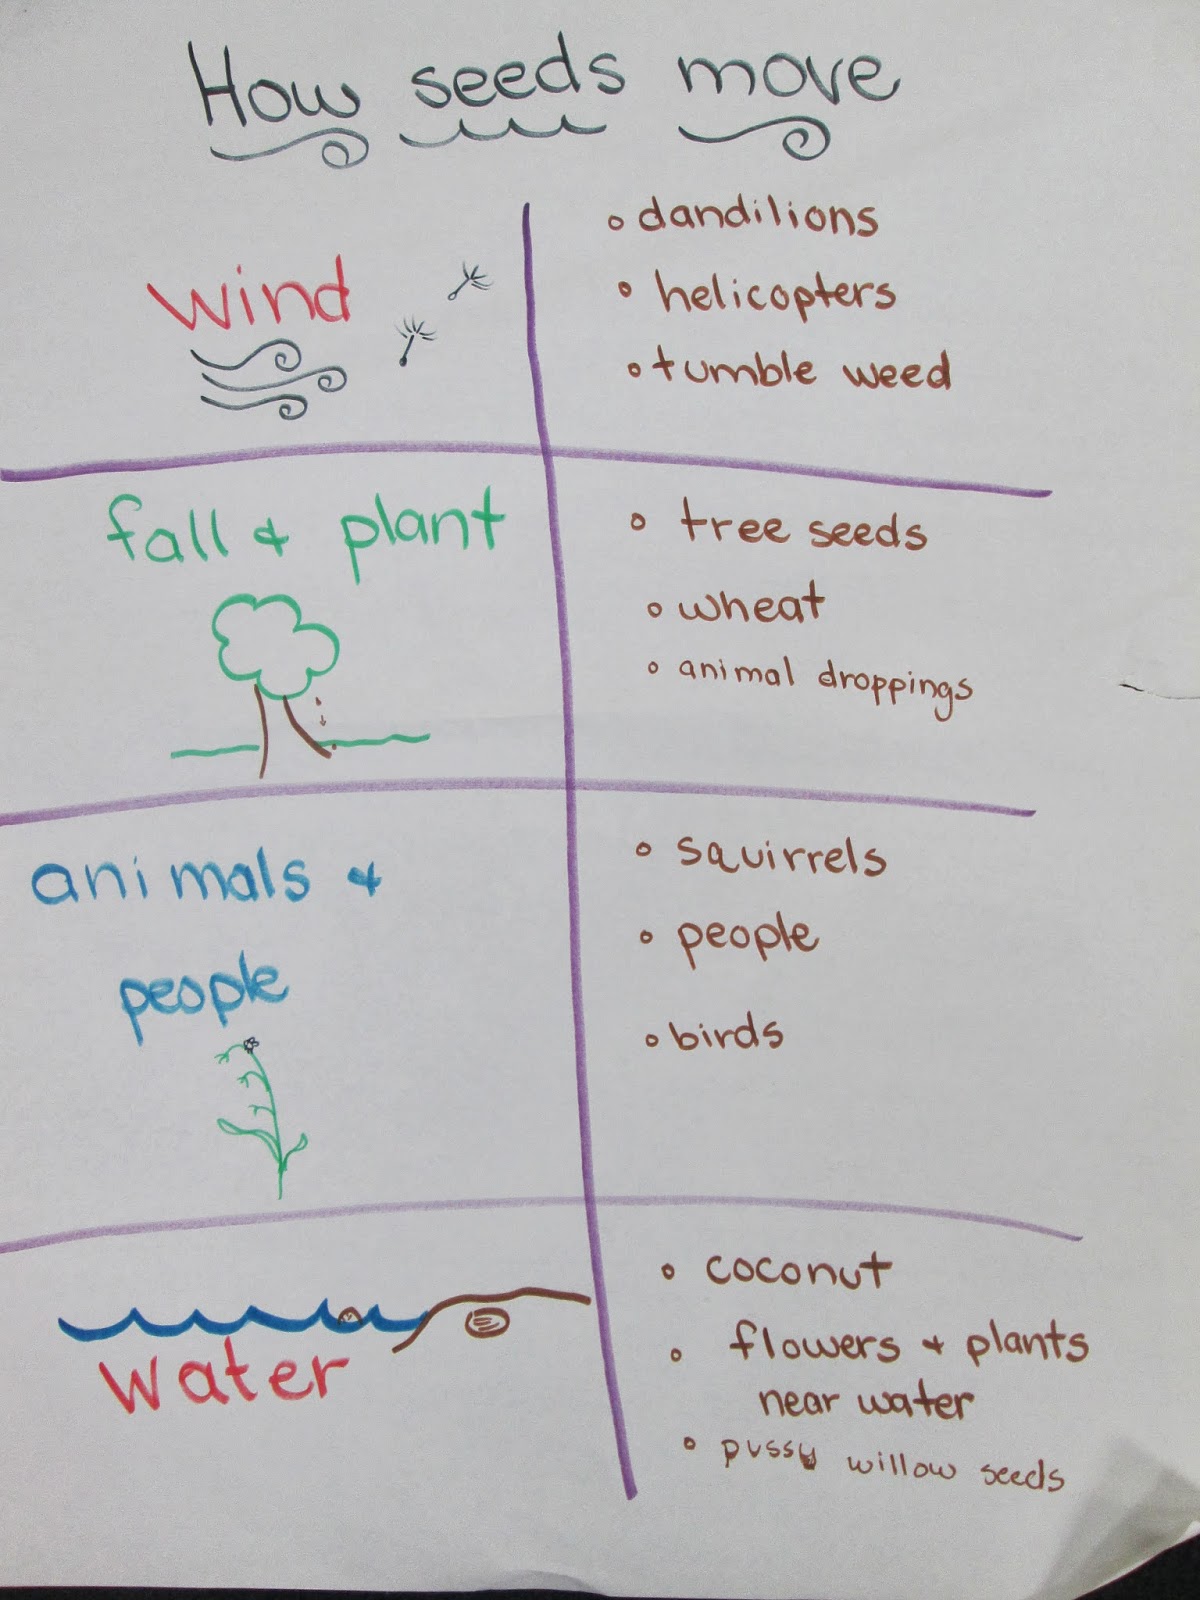 How seeds move
wind
• dandilions
• helicopters
• tumble weed
fall & plant
• tree seeds
• wheat
• animal droppings
animals &
people
• squirrels
• people
• birds
water
• coconut
• flowers & plants
near water
• pussy willow seeds